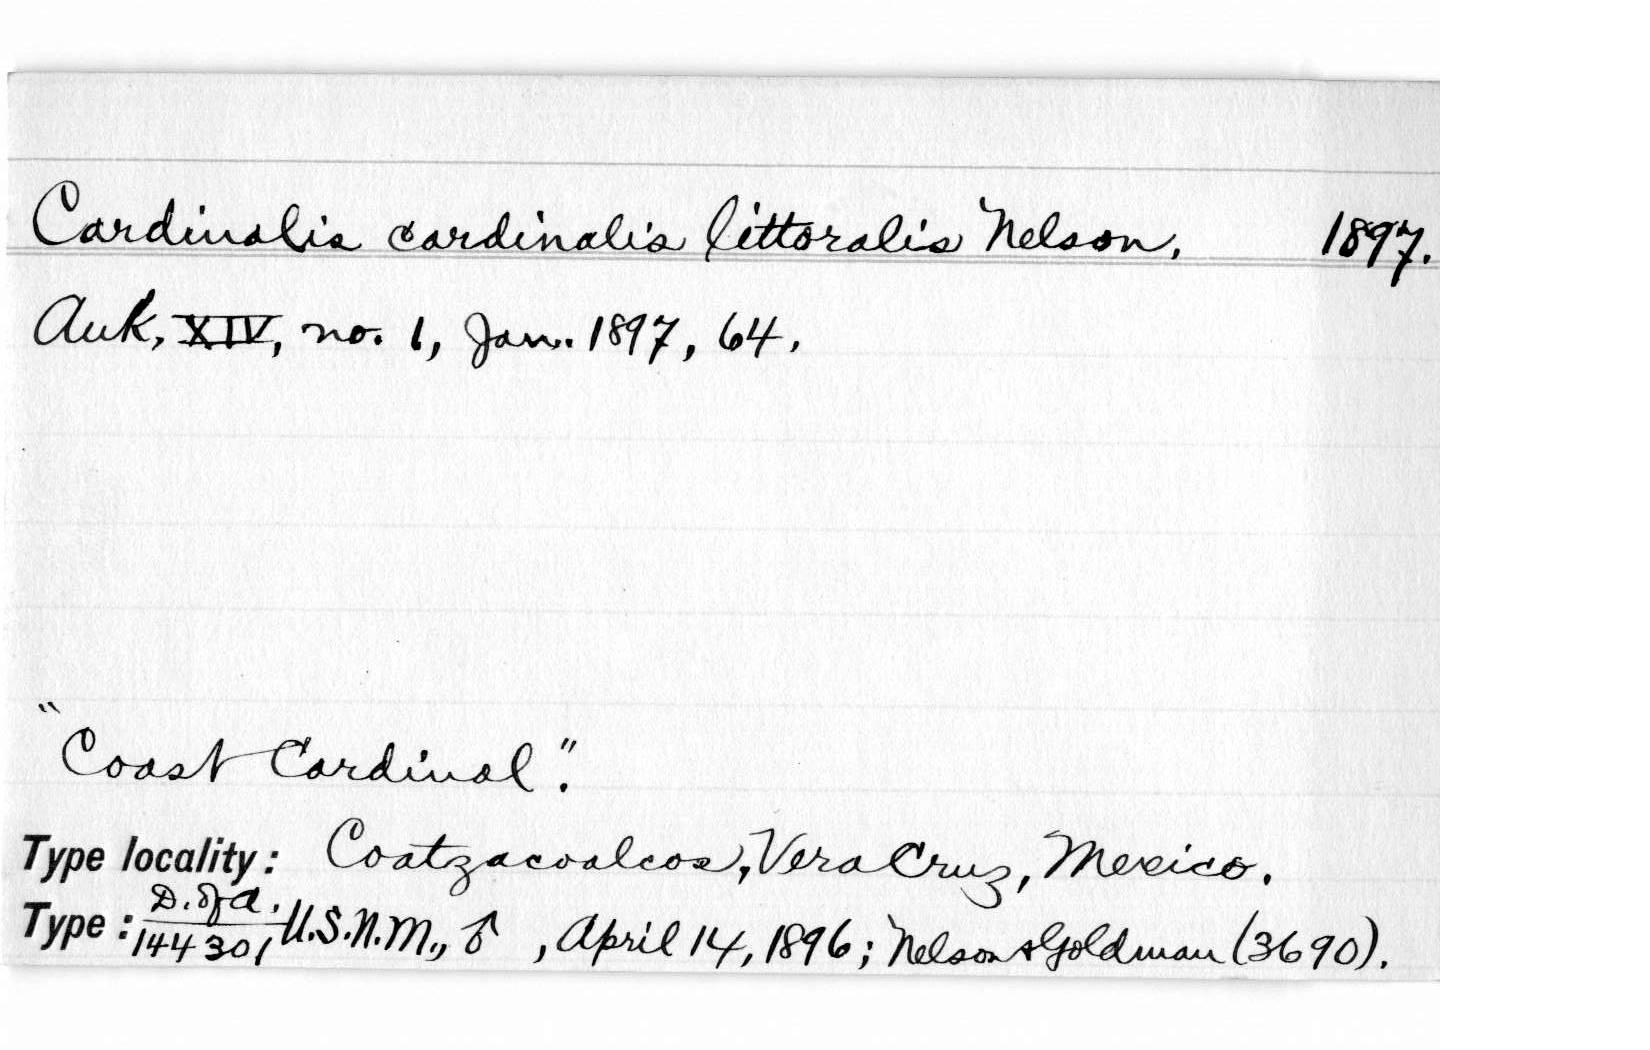 Cardinalis cardinalis littoralis Nelson, 1897.
Auk, XIV, no. 1, Jan. 1897, 64.
"Coast Cardinal".
Type locality: Coatzacoalcos, Vera Cruz, Mexico.
Type: D. of A. / 144301 U.S.N.M., ♂, April 14, 1896; Nelson & Goldman (3690).